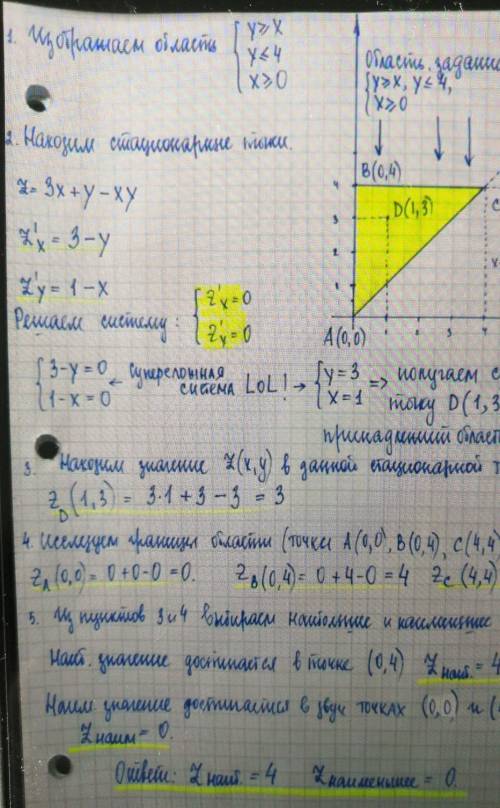 1. Изображаем область { y ≥ x
y ≤ 4
x ≥ 0
Область, заданн
{ y ≥ x, y ≤ 4,
x ≥ 0
2. Находим стационарные точки.
B(0,4)
4
C
z = 3x + y − xy
D(1,3)
3
2
z'x = 3 − y
x
1
z'y = 1 − x
A(0,0)
Решаем систему: { z'x = 0
z'y = 0
{ 3−y=0
1−x=0
← суперсложная
система LOL! →
{ y=3
x=1
=> получаем с
точку D(1,3
принадлежит област
3. Находим значение z(x,y) в данной стационарной т
zD(1,3) = 3·1 + 3 − 3 = 3
4. Исследуем границы области (точки A(0,0), B(0,4), C(4,4)
zA(0,0) = 0+0−0 = 0. zB(0,4) = 0+4−0 = 4 zC(4,4)
5. Из пунктов 3 и 4 выбираем наибольшее и наименьшее
Наиб. значение достигается в точке (0,4) zнаиб. = 4
Наим. значение достигается в двух точках (0,0) и (
zнаим = 0.
Ответ: zнаиб. = 4 zнаименьшее = 0.